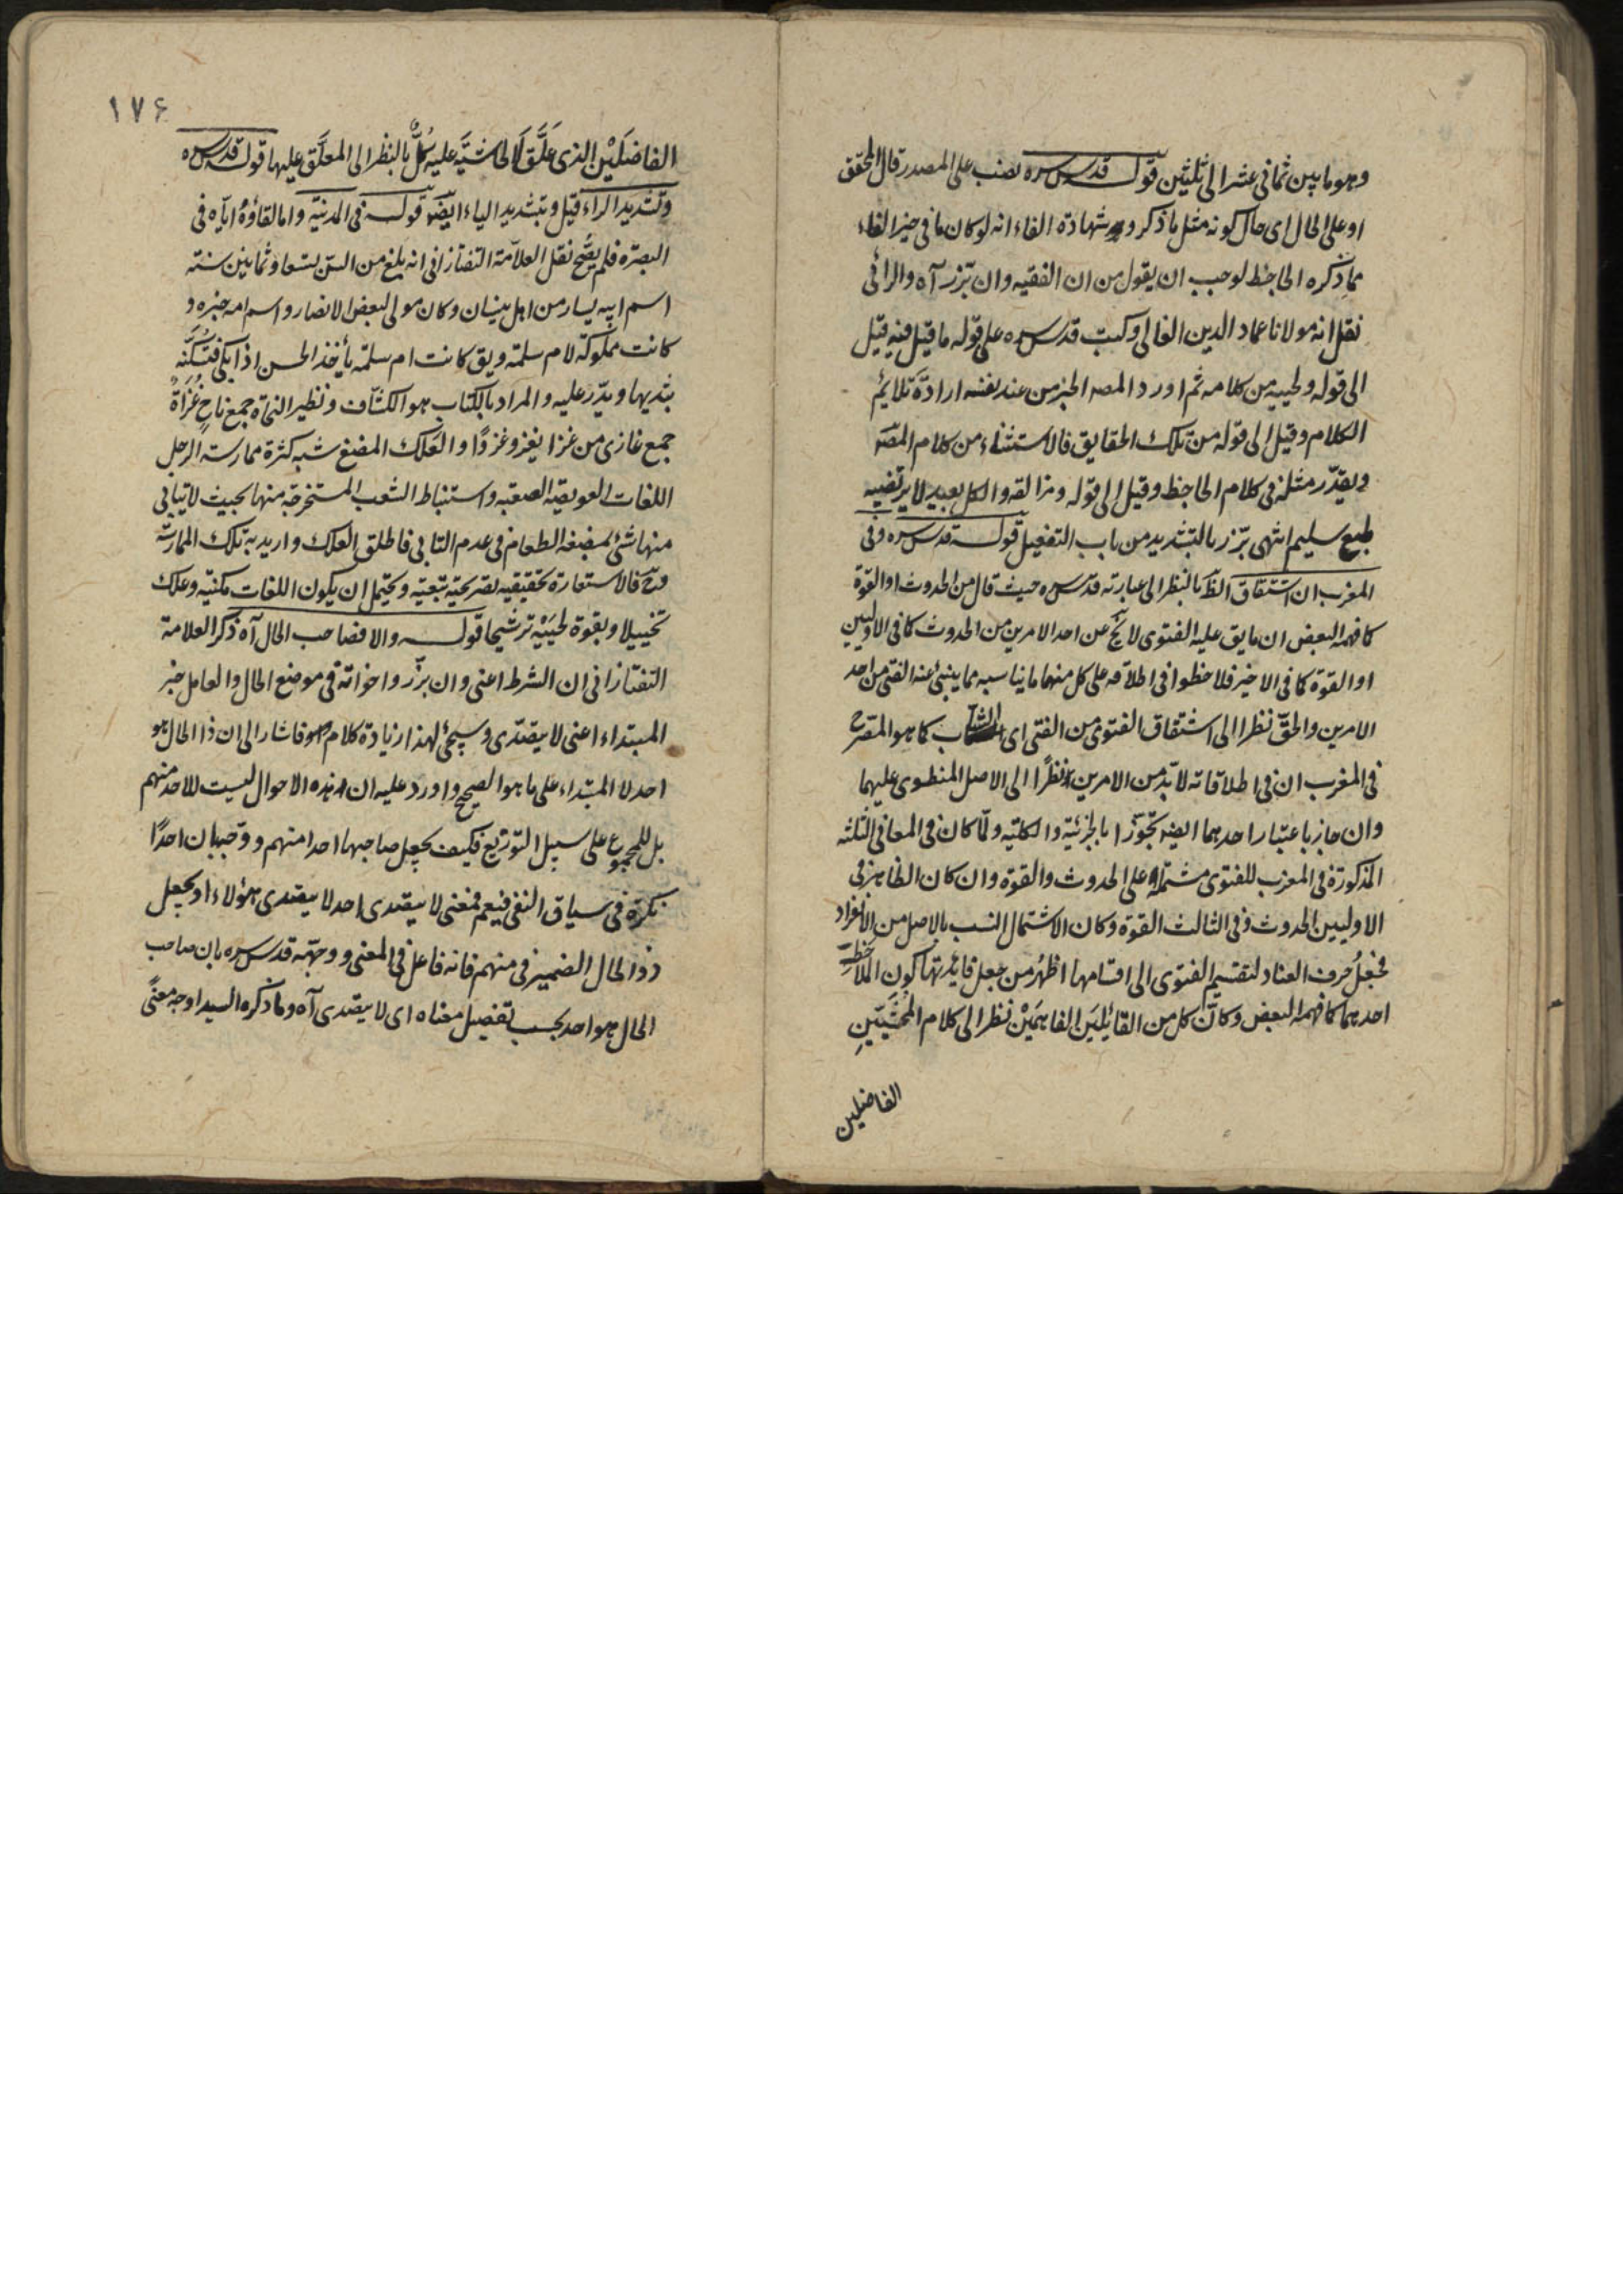 وهو ما بين ثماني عشر الى ثلثين قوله قدس سره نصب على المصدر قال المحقق
او على الحال اى حال كونه مثل ما ذكر و شهادة الفاء انه لو كان ما فى حيز الفاء
مما ذكره الجاحظ لوجب ان يقول من ان الفقيه وان برز آه والرائى
نقل انه مولانا عماد الدين الفالى وكتب قدس سره على قوله ما قيل فيه قيل
الى قوله ولحييه من كلامه ثم اورد المصه الخبر من عند نفسه ارادة تلايم
الكلام وقيل الى قوله من تلك الحقايق فالاستثناء من كلام المصه
ويقدر مثله فى كلام الجاحظ وقيل الى قوله ومزالقه والكل بعيد لا يرتضيه
طبع سليم انتهى برز بالتشديد من باب التفعيل قوله قدس سره وفى
المغرب ان اشتقاق الظ بالنظر الى عبارته قدس سره حيث قال من الحدوث او القوة
كما فهمه البعض ان ما يق عليه الفتوى لا يخ عن احد الامرين من الحدوث كما فى الاوليين
او القوة كما فى الاخير فلاحظوا فى اطلاقه على كل منهما ما يناسبه مما ينبئ عنه الفتى من احد
الامرين والحق نظرا الى اشتقاق الفتوى من الفتى اى الشاب كما هو المقرح
فى المغرب ان فى اطلاقاته لا بد من الامرين نظرًا الى الاصل المنطوى عليهما
وان جاز باعتبار احدهما ايضا تجوزا بالجزئية والكلية ولما كان فى المعانى الثلثه
المذكورة فى المغرب للفتوى مشتملة على الحدوث والقوة وان كان الظاهر فى
الاوليين الحدوث وفى الثالث القوة وكان الاشتمال انسب بالاصل من الانفراد
فجعلُ حرف العناد لتقسيم الفتوى الى اقسامها اظهرُ من جعل فايدتها كون الملاحظ
احدهما كما فهمه البعض وكانّ كل من القائلَين الفاهمَيْن نظر الى كلام المحَشِّيَينِ
الفاضلين
١٧۶
الفاضلَيْن الذى عَلَّق الحاشيَّة عليه كلٌّ بالنظر الى المعلَّق عليها قوله قدس سره
وتشديد الراء قيل وبتشديد الياء ايضا قوله فى المدنية واما لقاؤهُ اياه فى
البصرة فلم يصح نقل العلامة التفتازانى انه بلغ من السن تسعا وثمانين سنة
اسم ابيه يسار من اهل ميسان وكان مولى لبعض الانصار واسم امه خيره و
كانت مملوكة لام سلمة ويق كانت ام سلمة يأخذ الحسن اذا بكى فتُسَكِّته
بثديها ويدر عليه والمراد بالكتاب هو الكشاف ونظير النحاة جمع ناحٍ غُزَاةٌ
جمع غازى من غزا يغزو غزوًا والعَلك المضغ شبه كثرة ممارسة الرجل
اللغات العويصة الصعبة واستنباط الشعب المستخرجة منها بحيث لا يتأبى
منها شئ بمضغه الطعام فى عدم التابى فاطلق العلك واريد به تلك الممارسة
وح فالاستعارة تحقيقيه تصريحية تبعية ويحتمل ان يكون اللغات مكنيّه وعلك
تخييلا وبقوة لحيَيْه ترشيحا قوله والا فصاحب الحال آه ذكر العلامة
التفتازانى ان الشرط اعنى وان برّز واخواته فى موضع الحال والعامل خبر
المبتداء اعنى لا يتصدى وسيجئ لهذا زيادة كلام فاشار الى ان ذا الحال هو
احد لا المبتداء على ما هو الصحيح واورد عليه ان هذه الاحوال ليست للاحد منهم
بل للمجموع على سبيل التوزيع فكيف يجعل صاحبها احدا منهم ووجبها بان احدًا
نكرة فى سياق النفى فيعم فمعنى لا يتصدى احد لا يتصدى هؤلاء او يجعل
ذو الحال الضمير فى منهم فانه فاعل فى المعنى ووجّهه قدس سره بان صاحب
الحال هو احد بحسب تفصيل معناه اى لا يتصدى آه وما ذكره السيد اوجه معنًى